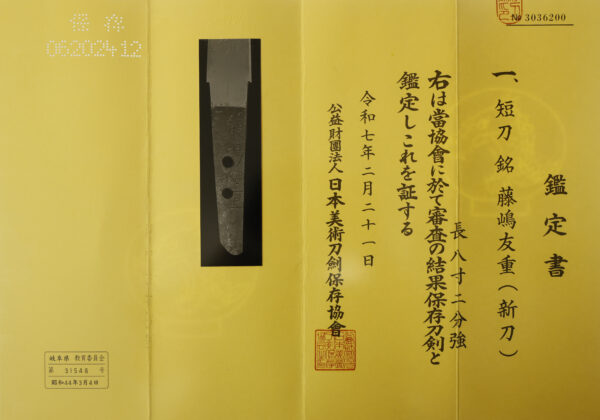 No 3036200
鑑定書
一、短刀 銘 藤嶋友重(新刀)
長 八寸二分強
右は當協會に於て審査の結果保存刀剣と
鑑定しこれを証する
令和七年二月二十一日
公益財團法人 日本美術刀劍保存協會
保存
062024 12
岐阜県 教育委員会
第 31548 号
昭和44年3月4日